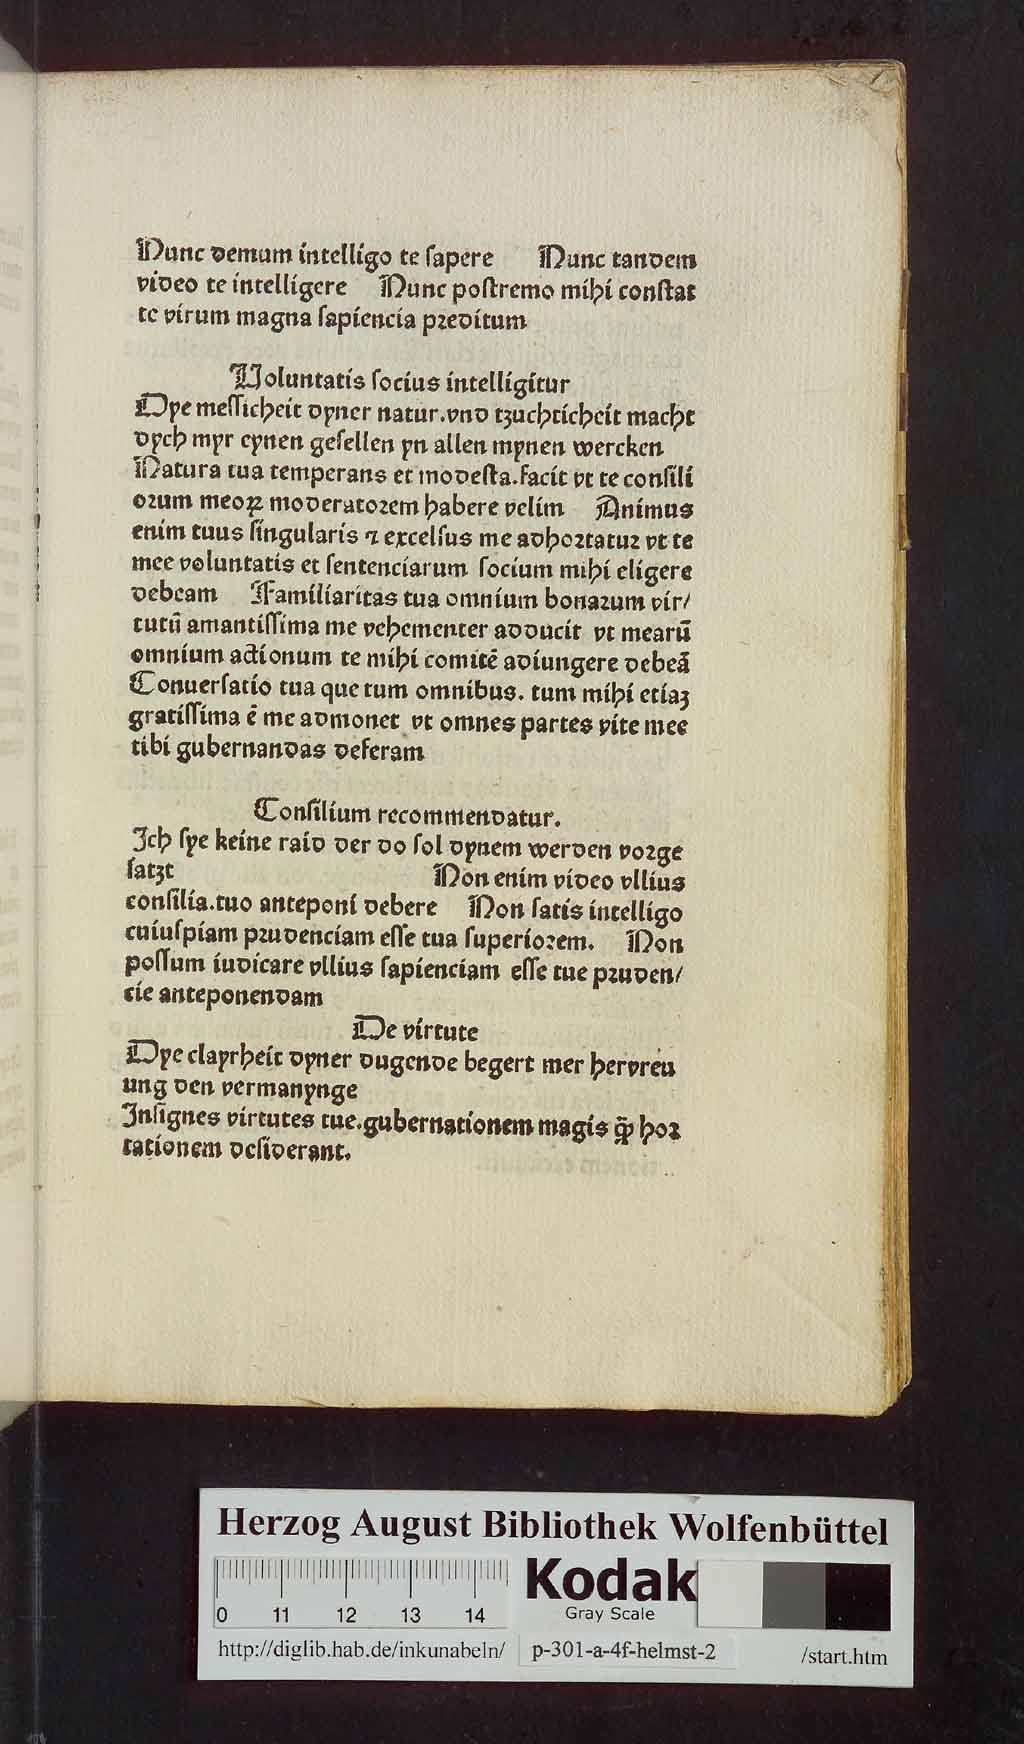 Nunc demum intelligo te ſapere Nunc tandem
video te intelligere Nunc poſtremo mihi conſtat
te virum magna ſapiencia preditum
Voluntatis ſocius intelligitur
Dye meſſicheit dyner natur.vnd tzuchticheit macht
dych myr eynen geſellen yn allen mynen wercken
Natura tua temperans et modeſta.facit vt te conſili
orum meoꝝ moderatorem habere velim Animus
enim tuus ſingularis ⁊ excelſus me adhortatur vt te
mee voluntatis et ſentenciarum ſocium mihi eligere
debeam Familiaritas tua omnium bonarum vir/
tutū amantiſſima me vehementer adducit vt mearū
omnium actionum te mihi comitē adiungere debeā
Conuerſatio tua que tum omnibus. tum mihi etiaʒ
gratiſſima ē me admonet vt omnes partes vite mee
tibi gubernandas deferam
Conſilium recommendatur.
Ich ſye keine raid der do ſol dynem werden vorge
ſatzt Non enim video vllius
conſilia.tuo anteponi debere Non ſatis intelligo
cuiuſpiam prudenciam eſſe tua ſuperiorem. Non
poſſum iudicare vllius ſapienciam eſſe tue pruden/
cie anteponendam
De virtute
Dye clayrheit dyner dugende begert mer hervreu
ung den vermanynge
Inſignes virtutes tue.gubernationem magis ꝙ̄ hor
tationem deſiderant.
Herzog August Bibliothek Wolfenbüttel
Kodak
Gray Scale
0 11 12 13 14
http://diglib.hab.de/inkunabeln/ p-301-a-4f-helmst-2 /start.htm